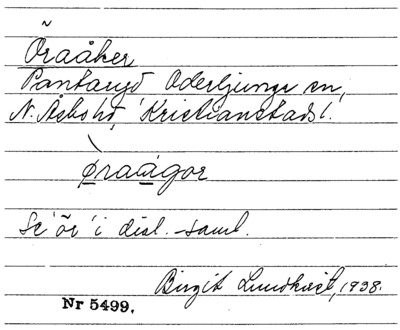 Öraåker
Pantaryd Oderljunga sn,
N. Åsbo hd, Kristianstads l.
øraågor
Se 'ör' i dial.-saml.
Birgit Lundkvist, 1938.
Nr 5499.